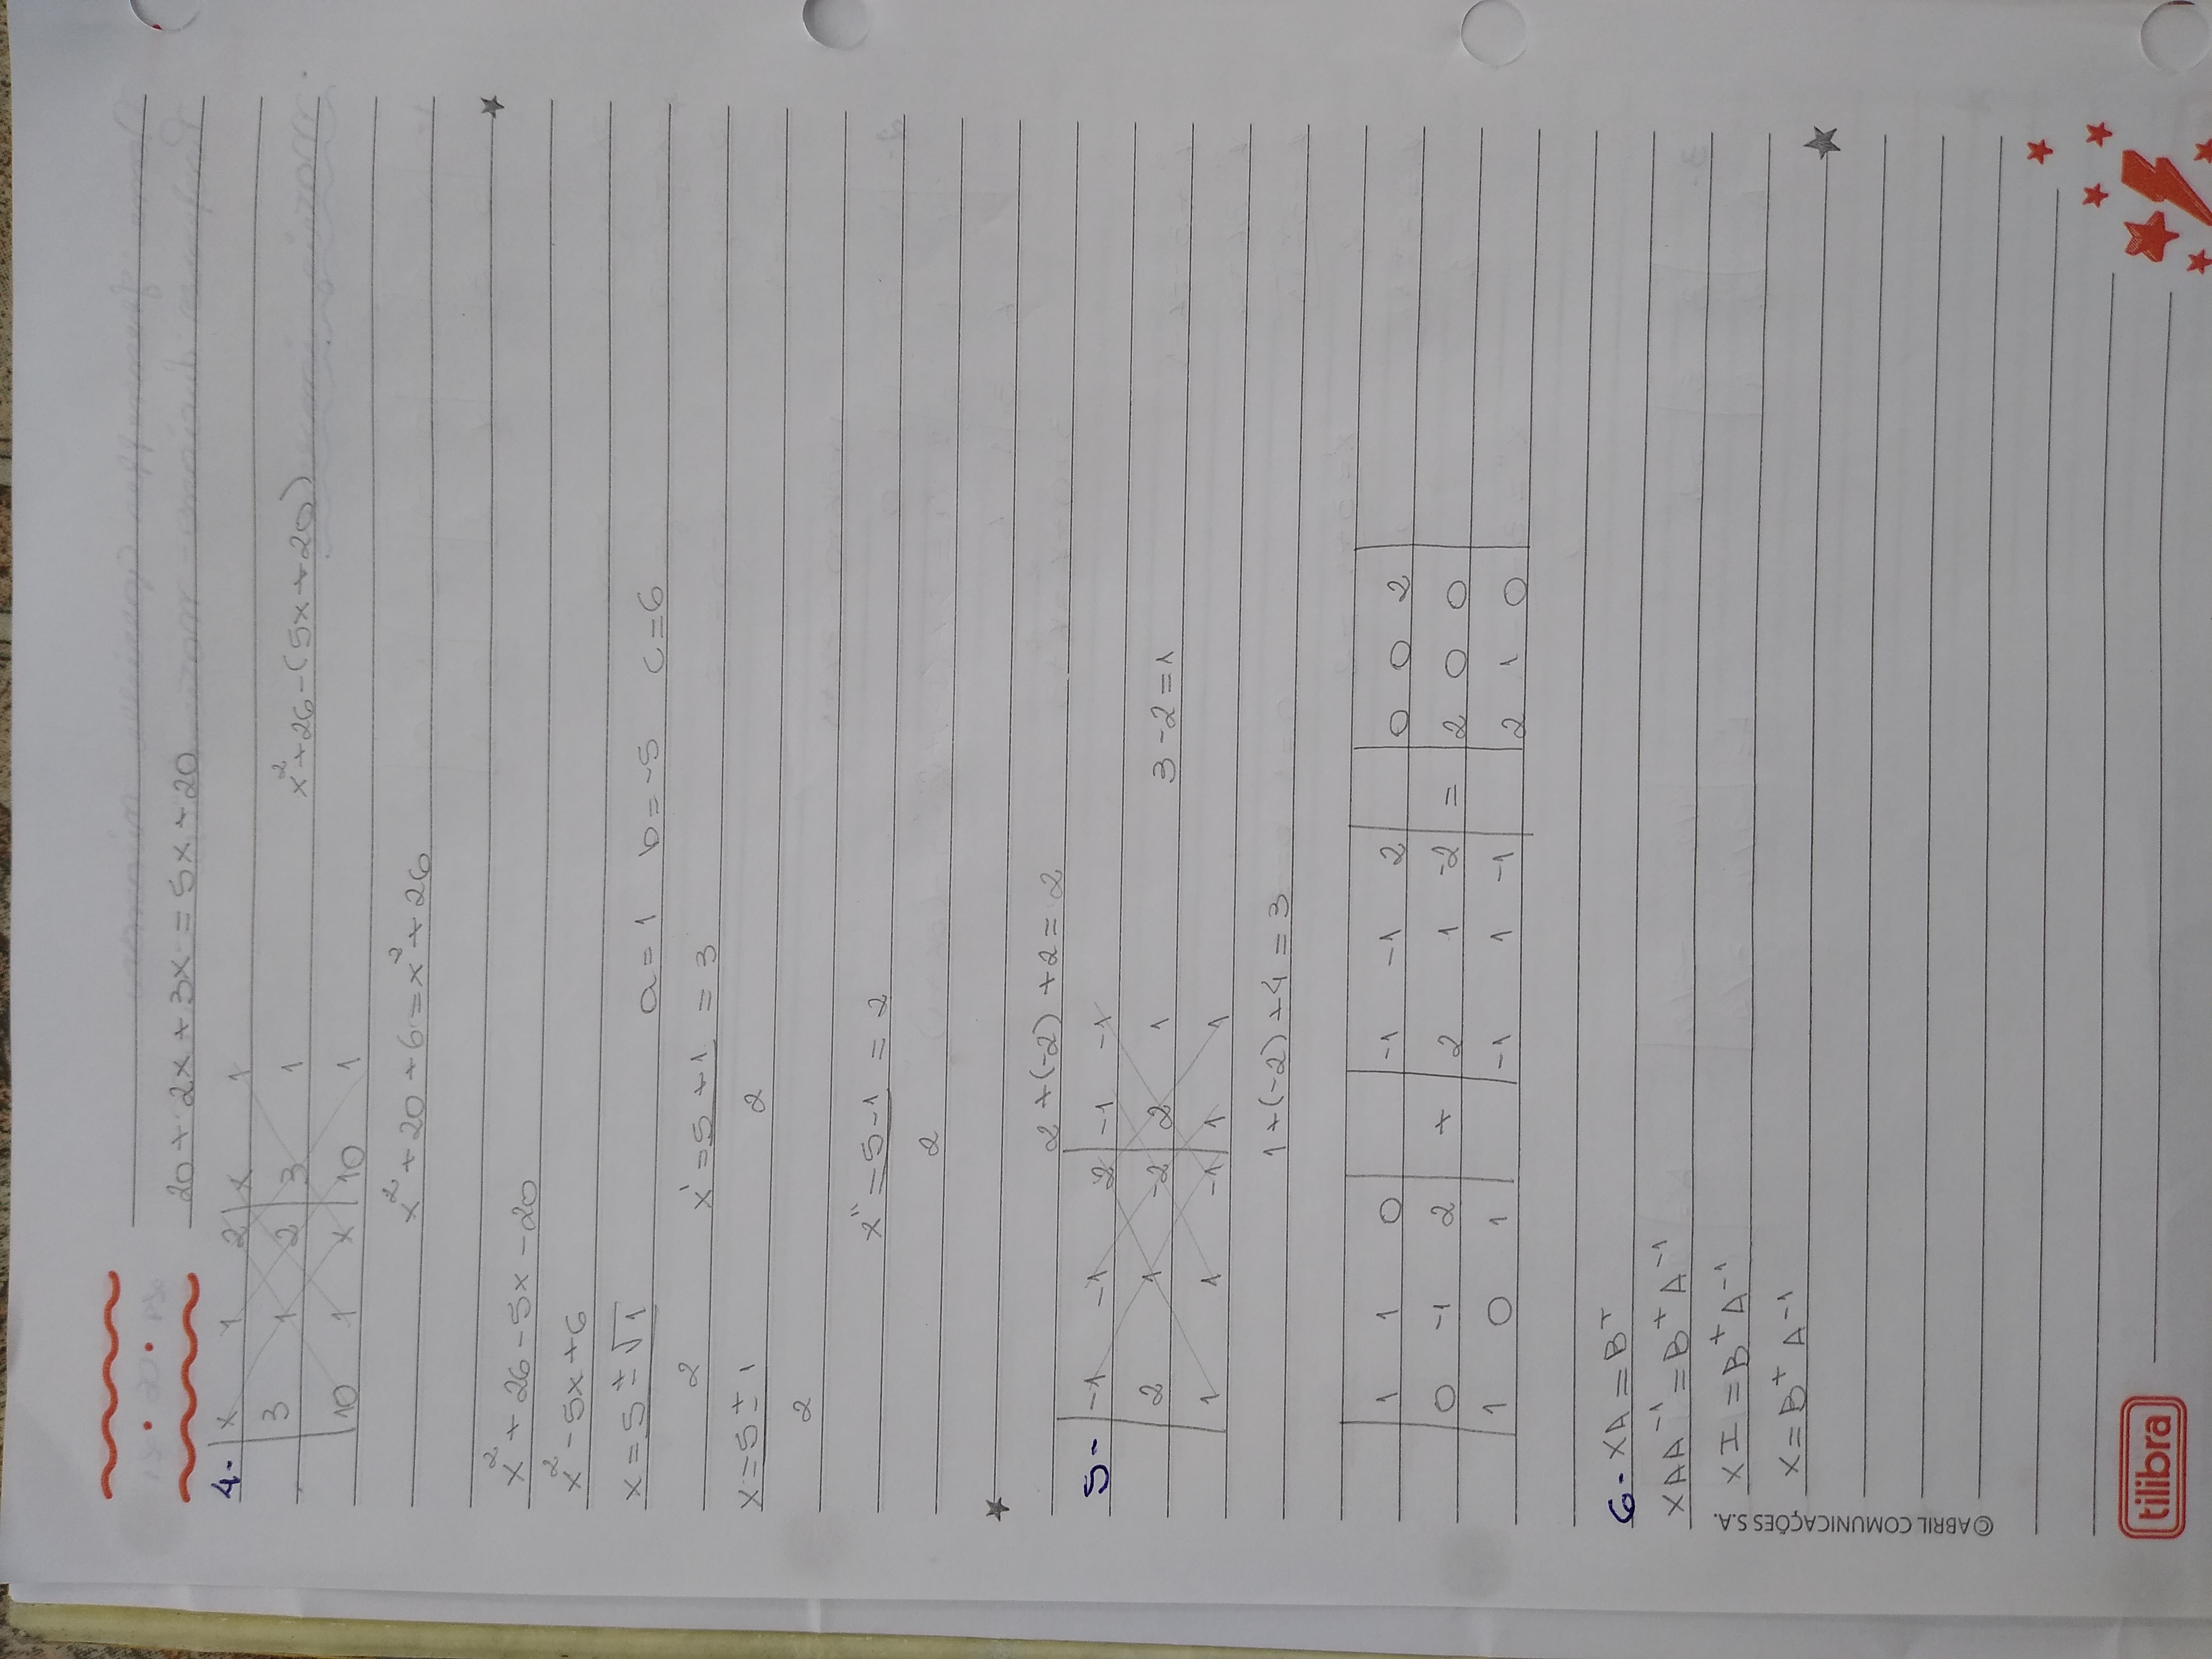 20 + 2x + 3x = 5x + 20
4- | x 1 2 | x 1
3 1 2 | 3 1
x² + 26 - (5x + 20)
10 1 x | 10 1
x² + 20 + 6 = x² + 26
x² + 26 - 5x - 20
x² - 5x + 6
x = 5 ± √1
2
a = 1 b = -5 c = 6
x' = 5 + 1 = 3
2
x = 5 ± 1
2
x'' = 5 - 1 = 2
2
2 + (-2) + 2 = 2
5- | -1 -1 2 | -1 -1
2 1 -2 | 2 1
3 - 2 = 1
1 1 -1 | 1 1
1 + (-2) + 4 = 3
| 1 1 0 | | -1 -1 2 | | 0 0 2 |
| 0 -1 2 | + | 2 1 -2 | = | 2 0 0 |
| 1 0 1 | | -1 1 -1 | | 2 1 0 |
6- XA = B⁺
XAA⁻¹ = B⁺A⁻¹
XI = B⁺A⁻¹
X = B⁺A⁻¹
©ABRIL COMUNICAÇÕES S.A.
tilibra